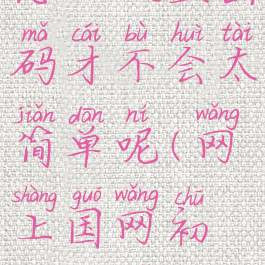 mǎ cái bù huì tài
码才不会太
jiǎn dān ní wǎng
简单呢(网
shàng guó wǎng chū
上国网初